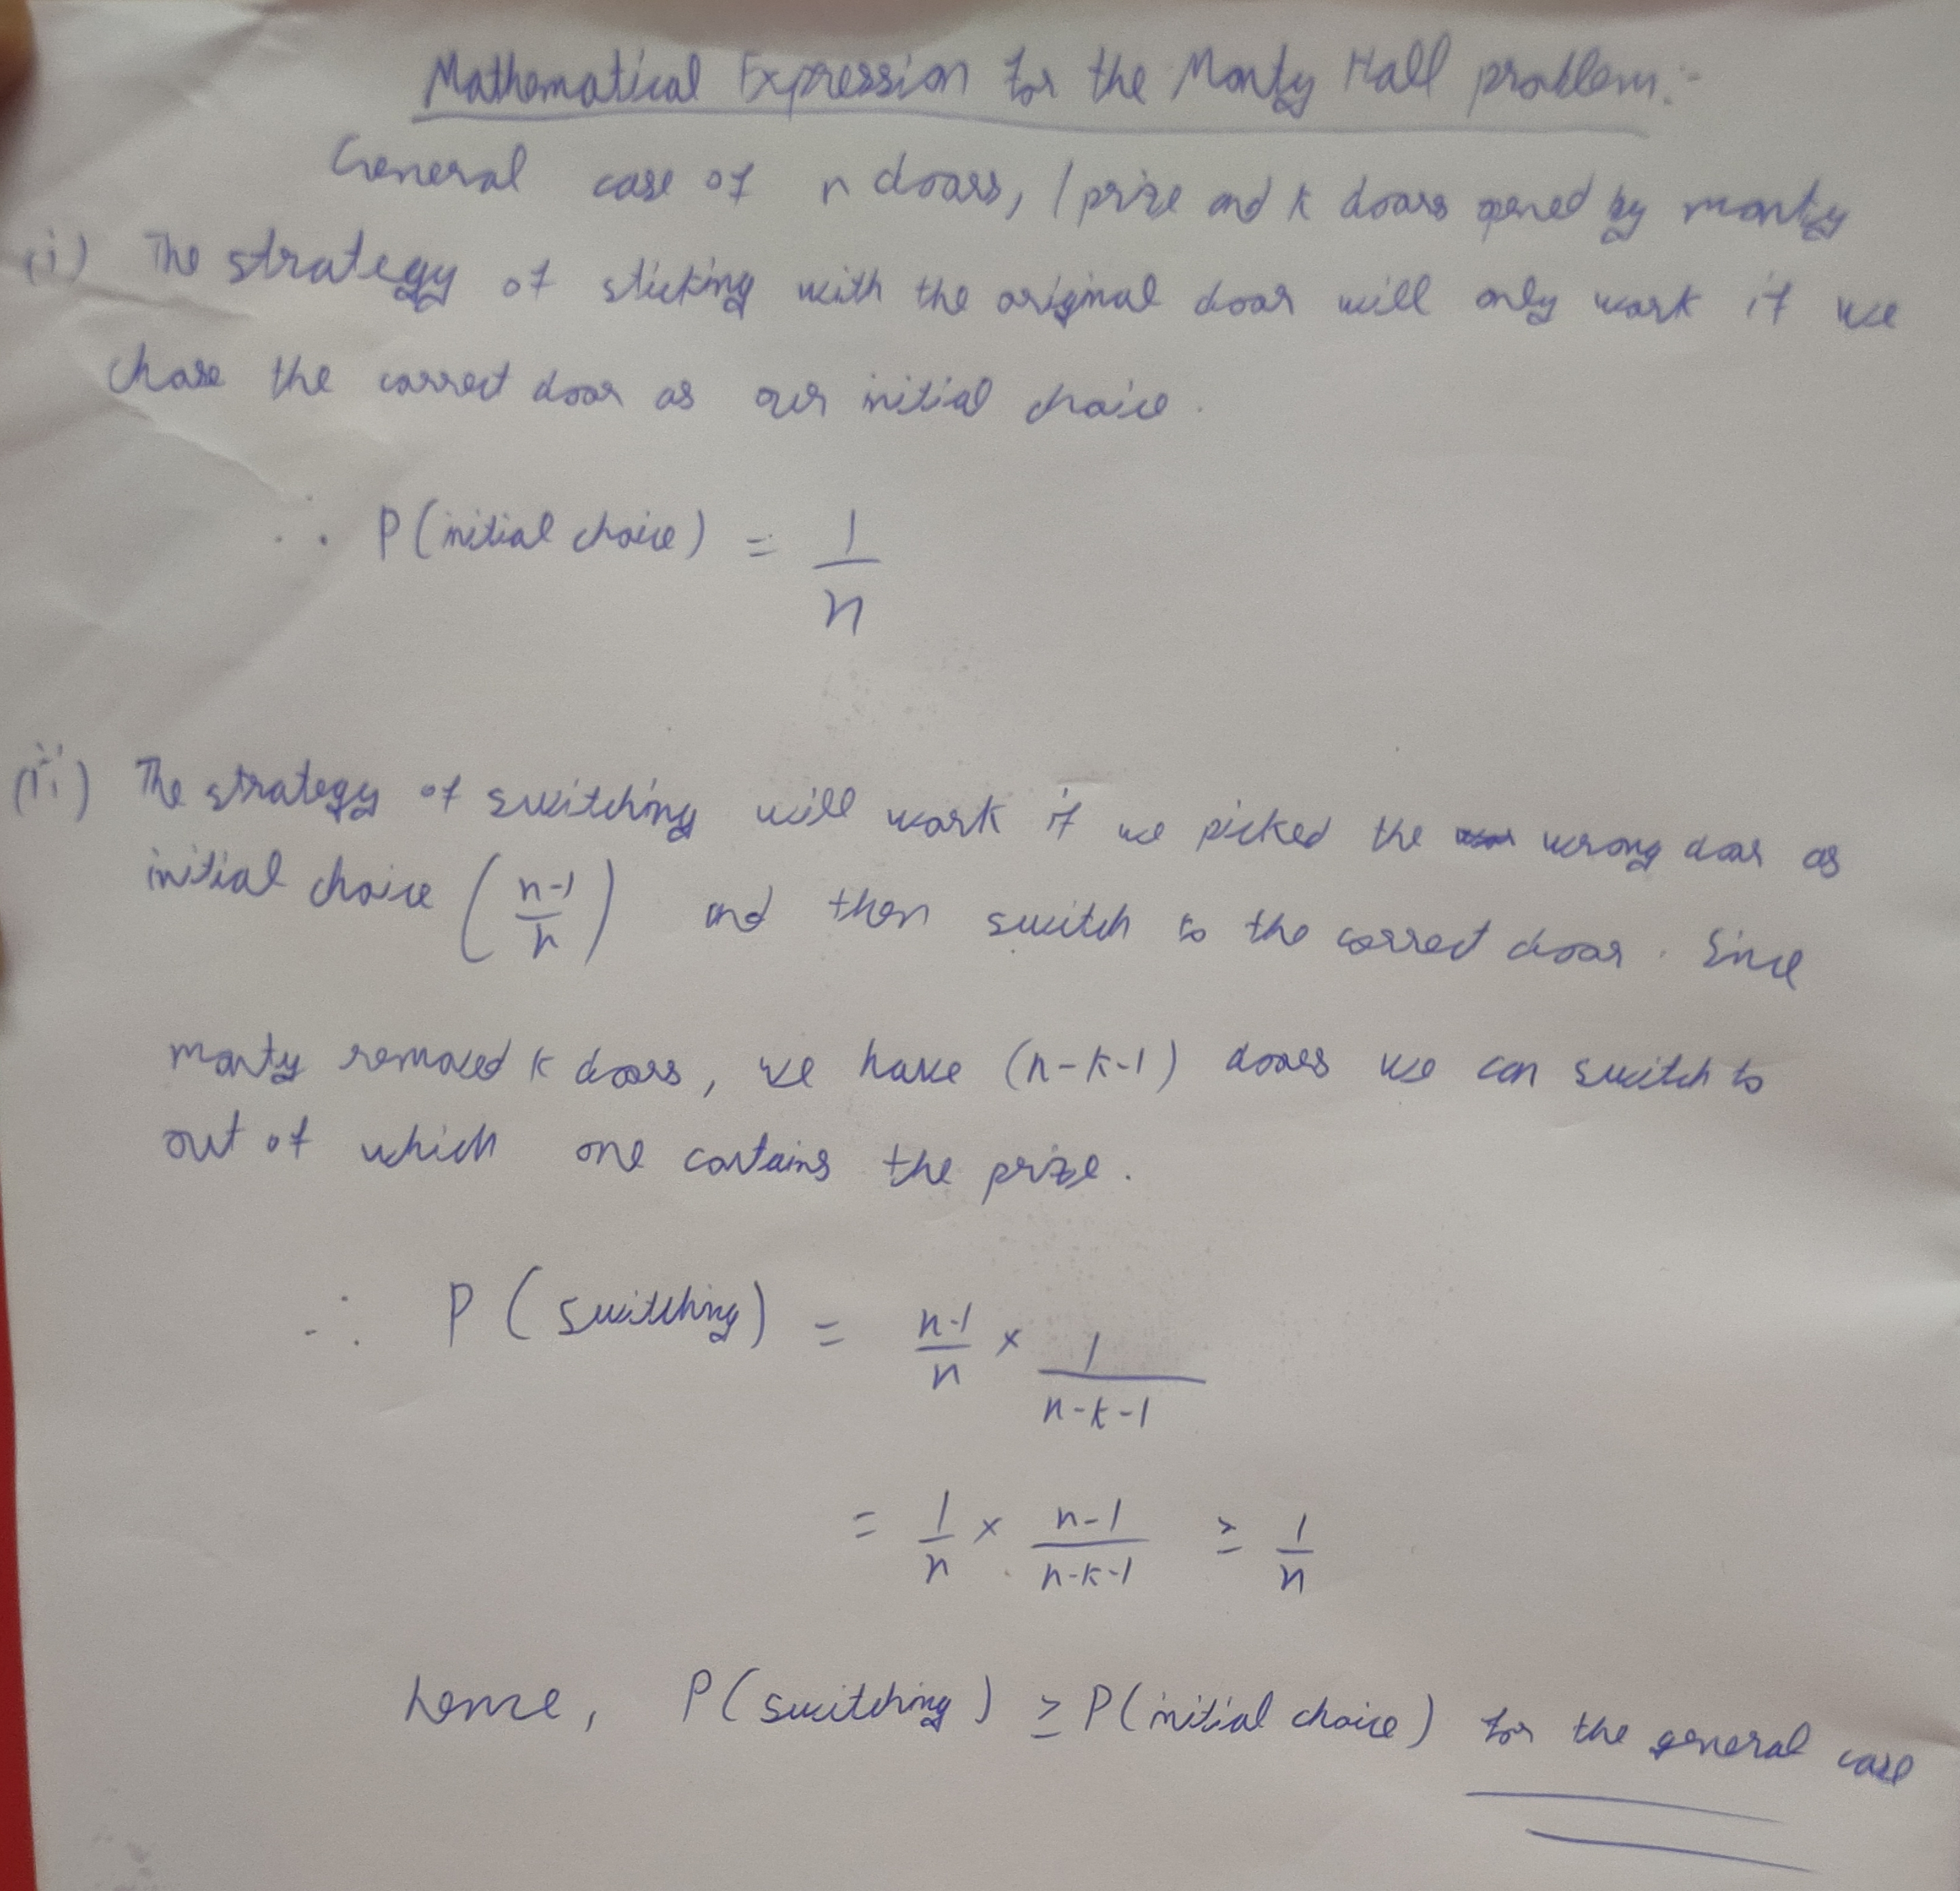 Mathematical Expression for the Monty Hall problem:-
General case of n doors, 1 prize and k doors opened by monty
(i) The strategy of sticking with the original door will only work if we
chose the correct door as our initial choice.
∴ P(initial choice) = 1/n
(ii) The strategy of switching will work if we picked the wrong door as
initial choice ((n-1)/n) and then switch to the correct door. Since
monty removed k doors, we have (n-k-1) doors we can switch to
out of which one contains the prize.
∴ P(switching) = (n-1)/n × 1/(n-k-1)
= 1/n × (n-1)/(n-k-1) ≥ 1/n
hence, P(switching) ≥ P(initial choice) for the general case